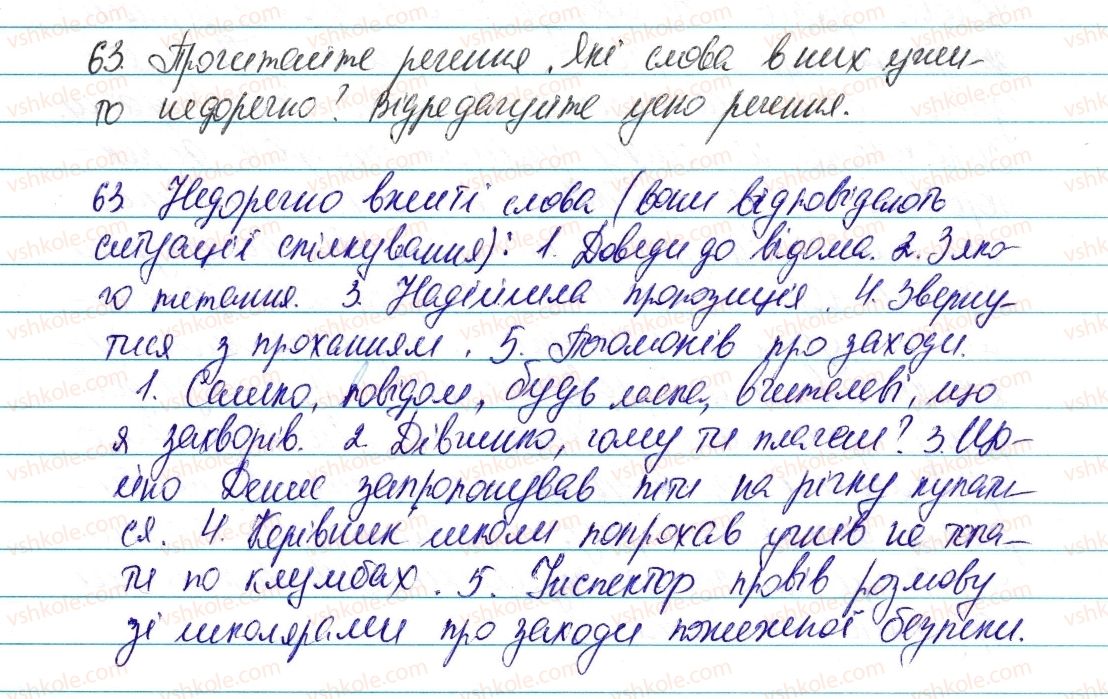 63. Прочитайте речення. Які слова в них ужи-
то недоречно? Відредагуйте усно речення.
63 Недоречно вжиті слова (вони відповідають
ситуації спілкування): 1. Доведи до відома. 2. З яко-
го питання. 3. Надійшла пропозиція. 4. Зверну-
тися з проханням. 5. Погомонів про заходи.
1. Сашко, повідом, будь ласка, вчителеві, що
я захворів. 2. Дівчинко, чому ти плачеш? 3. Що-
йно Денис запропонував піти на річку купати-
ся. 4. Керівник школи попрохав учнів не топта-
ти по клумбах. 5. Інспектор провів розмову
зі школярами про заходи пожежної безпеки.